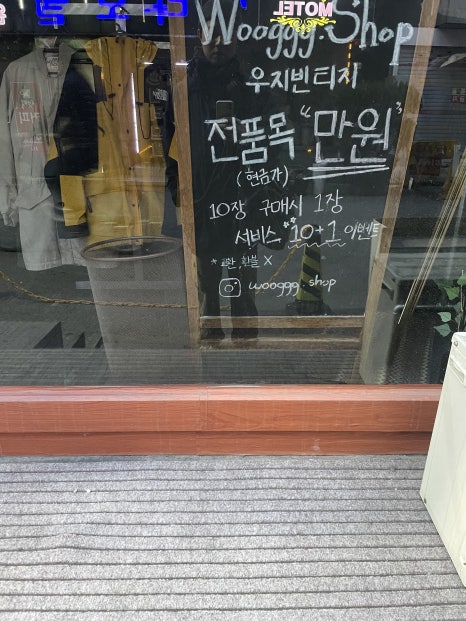 Wooggg.Shop
MOTEL
우지빈티지
전품목 "만원"
(현금가)
10장 구매시 1장
서비스 **10+1 이벤트
* 교환, 환불 X
wooggg.shop